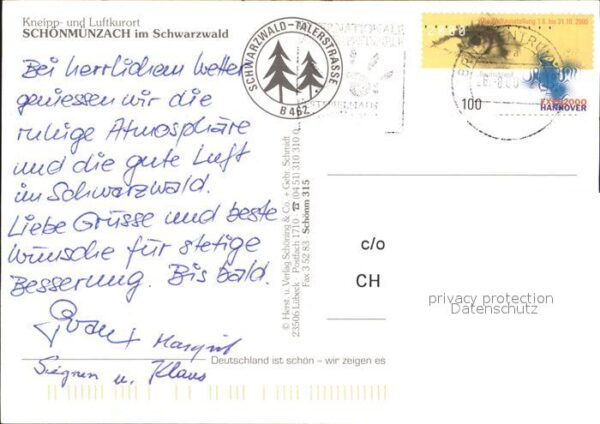 Kneipp- und Luftkurort
SCHÖNMÜNZACH im Schwarzwald
Bei herrlichem Wetter
geniessen wir die
ruhige Atmosphäre
und die gute Luft
im Schwarzwald.
Liebe Grüsse und beste
wünsche für stetige
Besserung. Bis bald.
Margrit
Siegrun u. Klaus
SCHWARZWALD-TÄLERSTRASSE
B 462
© Herst. u. Verlag Schöning & Co. + Gebr. Schmidt
23506 Lübeck · Postfach 1710 · ☎ (04 51) 310 310
Fax 3 52 83 Schönm 315
2000
100
EXPO2000
HANNOVER
c/o
CH
privacy protection
Datenschutz
Deutschland ist schön – wir zeigen es